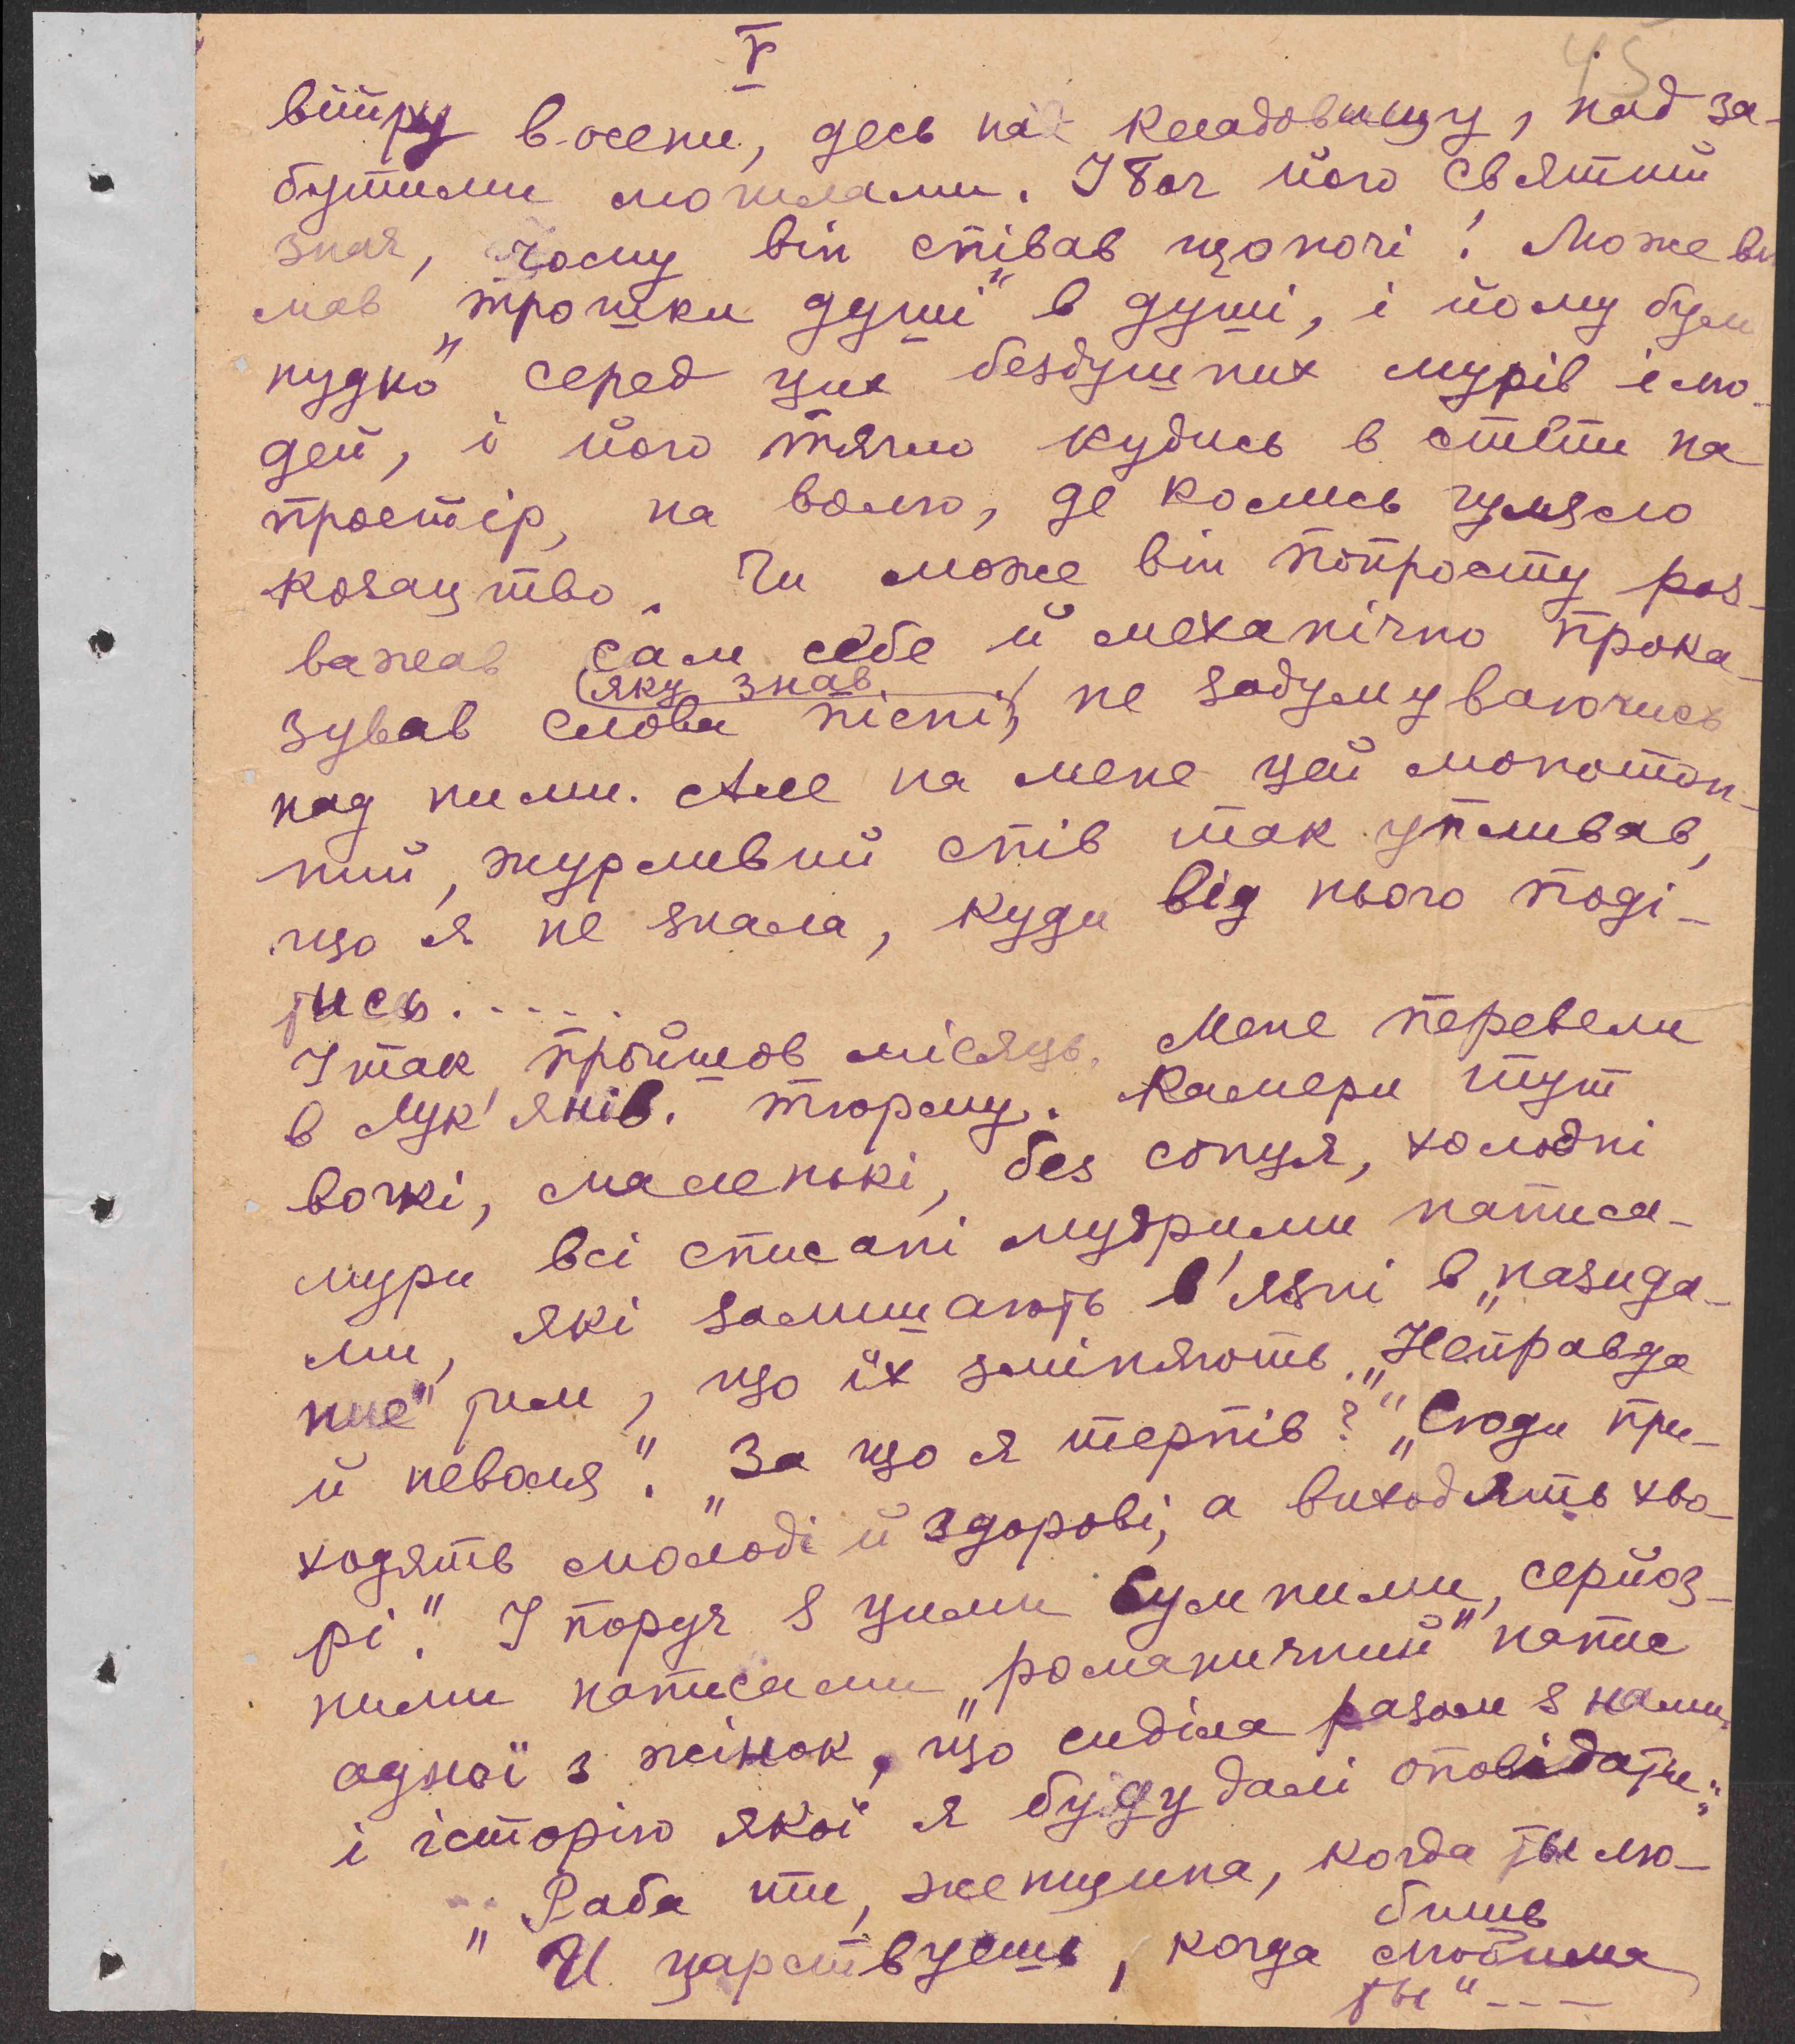 V
45
вітру в-осени, десь на кладовищу, над за-
бутими могилами. І Бог його святий
знає, чому він співав щоночі! Може він
мав „трошки душі" в душі, і йому було
нудно серед цих бездушних мурів і лю-
дей, і його тягло кудись в степи на
простір, на волю, де колись гуляло
козацтво. Чи може він попросту роз-
важав сам себе й механічно прока-
(яку знав)
зував слова пісні, не задумуваючись
над ними. Але на мене цей монотон-
ний, журливий спів так упливав,
що я не знала, куди від нього поді-
тись.....
І так пройшов місяць. Мене перевели
в Лук'янів. тюрму. Камери тут
вогкі, маленькі, без сонця, холодні
мури всі списані мудрими написа-
ми, які залишають в'язні в „назида-
ние" тим, що їх змінять. „Неправда
й неволя". „За що я терпів?" „Сюди при-
ходять молоді й здорові, а виходять хво-
рі". І поруч з цими сумними, серйоз-
ними написами „романичний" напис
одної з жінок, що сиділа разом з нами,
і історію якої я буду далі оповідати:
„Раба ти, женщина, когда ты лю-
бишь
„И царствуешь, когда любима
ты"---